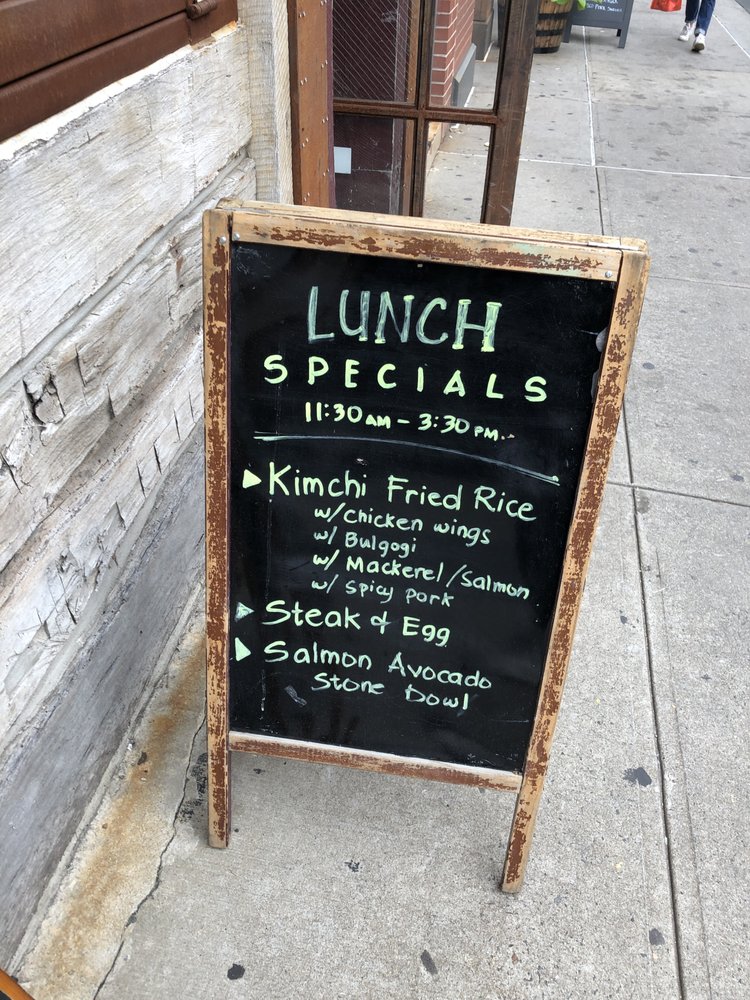 LUNCH
SPECIALS
11:30 AM - 3:30 PM.
Kimchi Fried Rice
w/Chicken wings
w/ Bulgogi
w/ Mackerel/Salmon
w/ Spicy pork
Steak & Egg
Salmon Avocado
Stone Bowl